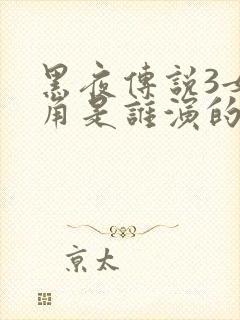 黑夜傳説3女
角是誰演的
京太